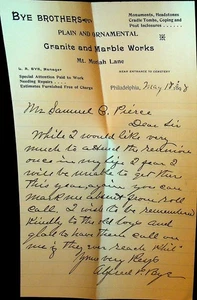 BYE BROTHERS
Monuments, Headstones
Cradle Tombs, Coping and
Post Inclosures
PLAIN AND ORNAMENTAL
Granite and Marble Works
Mt. Moriah Lane
NEAR ENTRANCE TO CEMETERY
Manager
Special Attention Paid to Work
Needing Repairs
Estimates Furnished Free of Charge
Philadelphia,
Mr Samuel C. Pierce
Dear Sir
While I would like very
much to attend the reunion
once in my life I fear I
will be unable to get there
this year again you can
mark me absent from roll
call. I wish to be remembered
kindly to the old boys and
glad to have them call on
me if they ever reach Phil
Yours very Resp
Alfred P. Bye